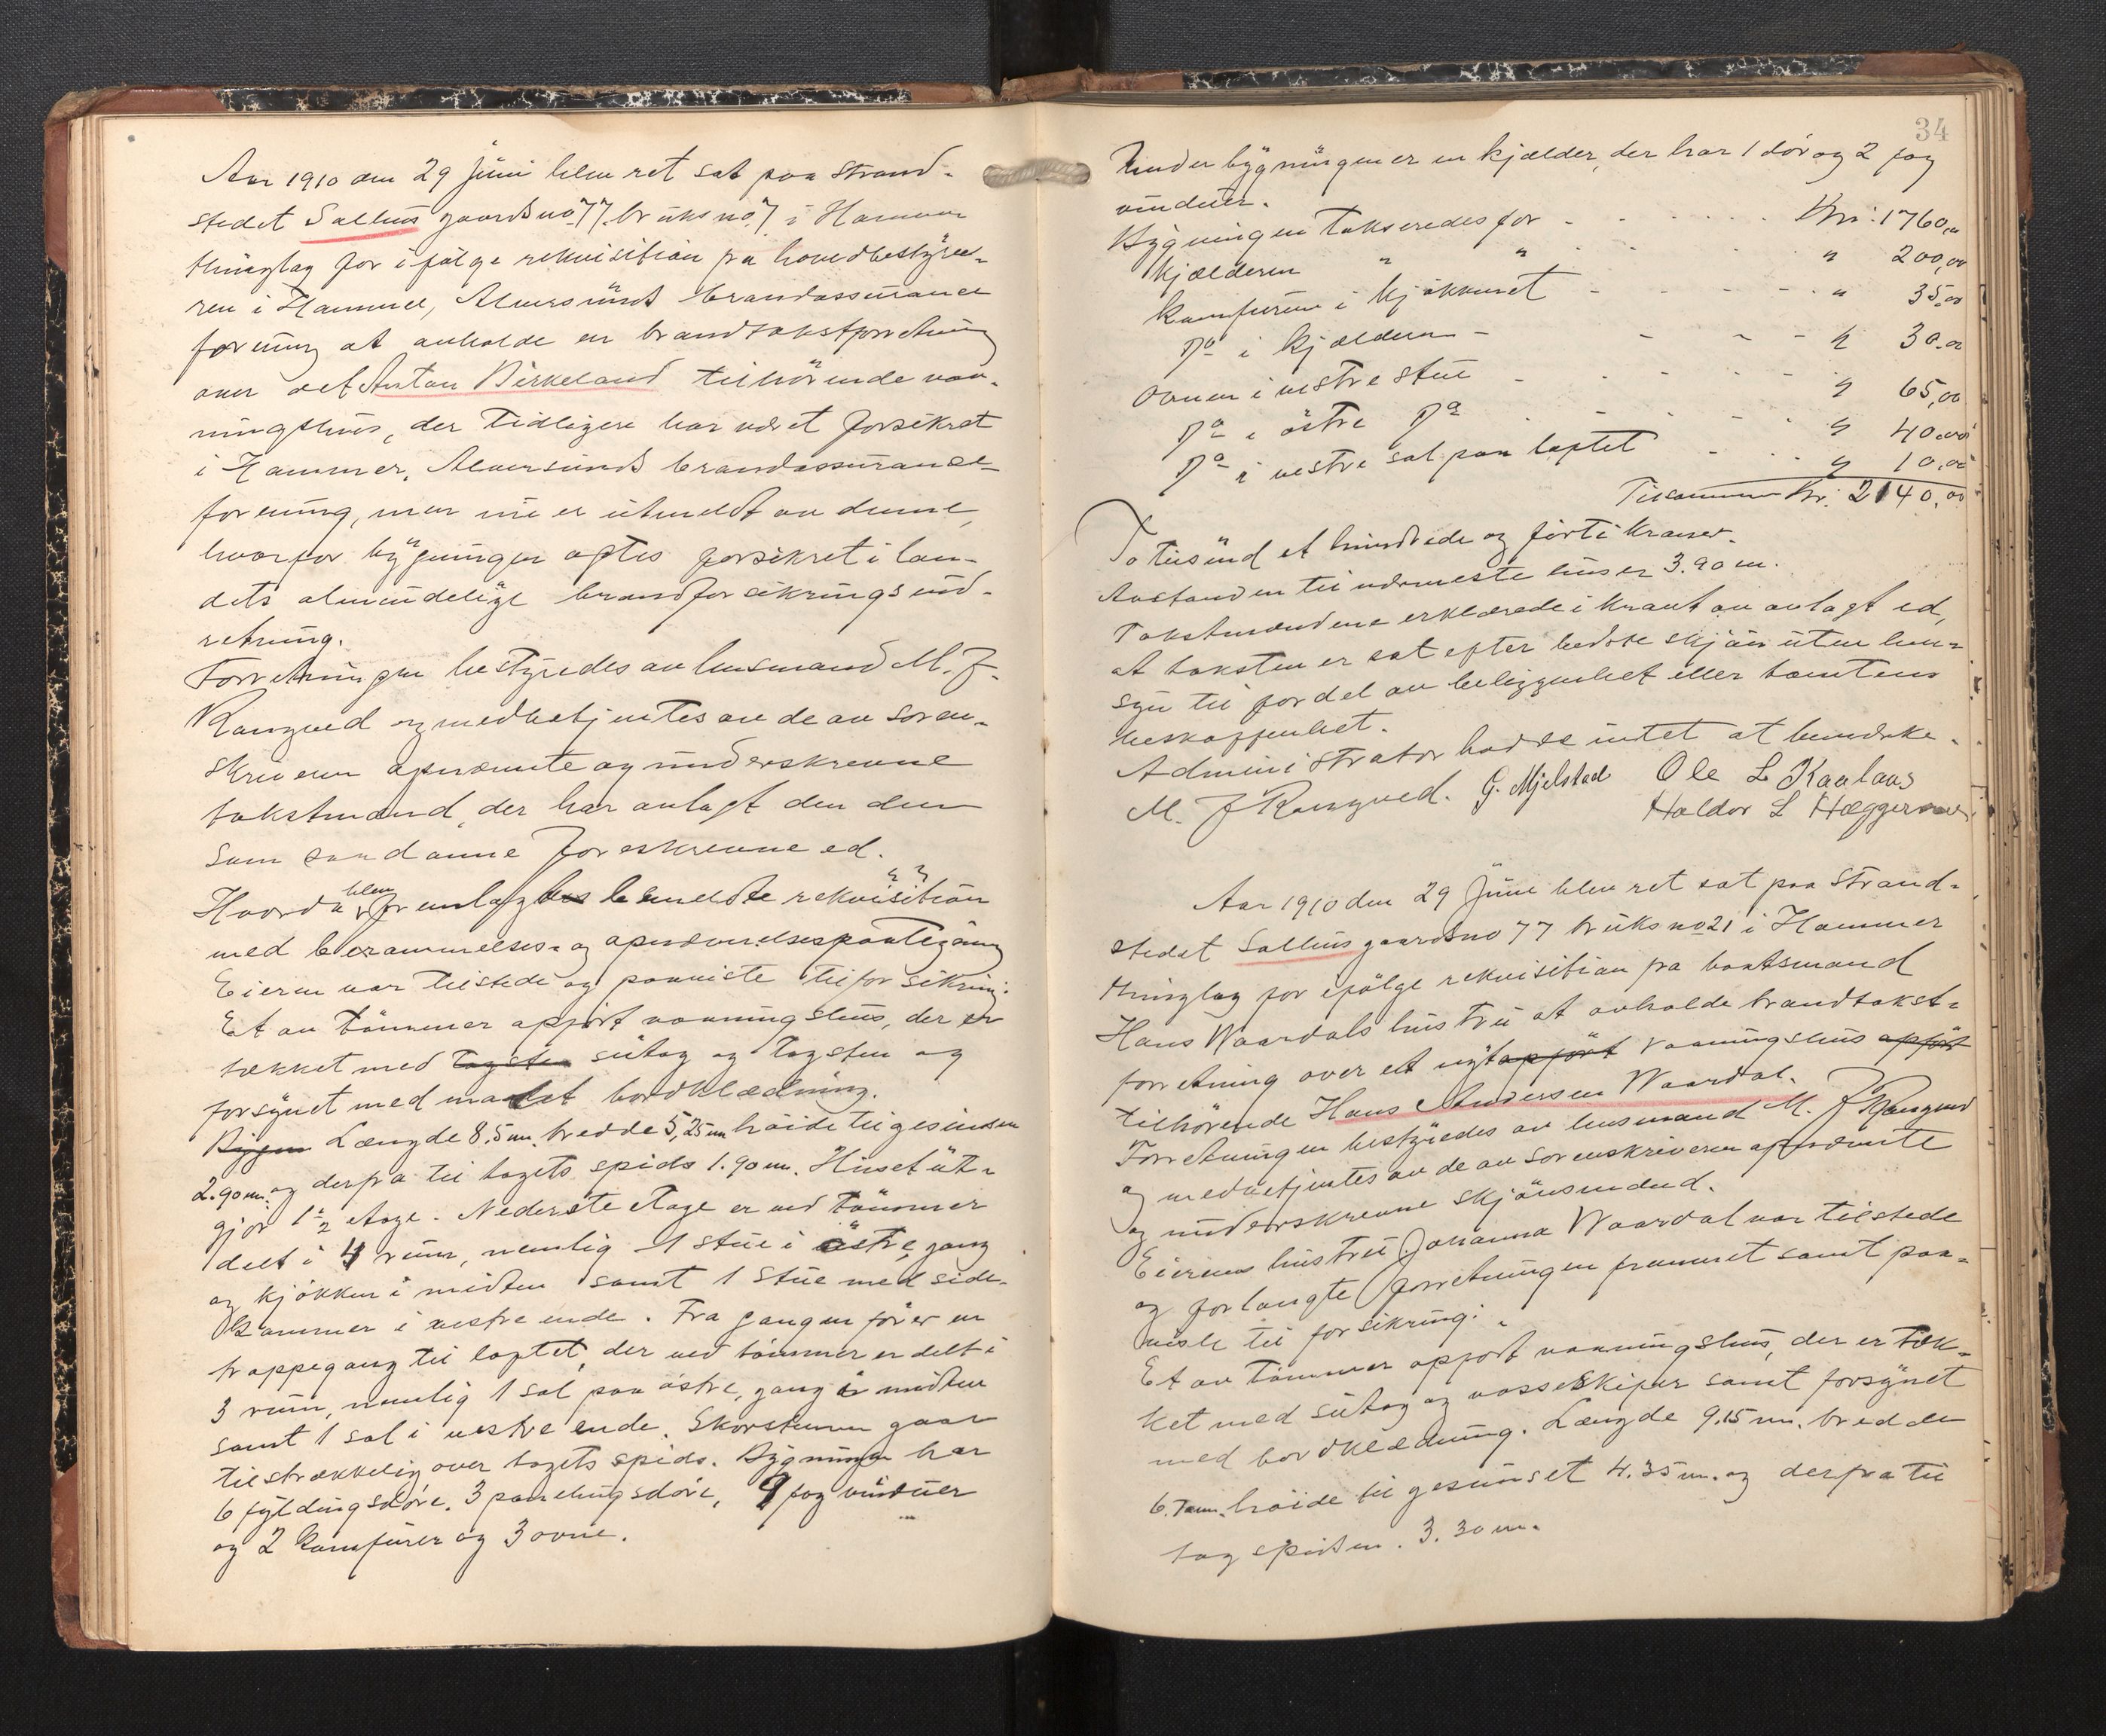 Aar 1910 den 29 juni blev ret sat paa strand-
stedet Salhus gaards no 77. bruks no 7 i Hammer
thinglag for ifölge rekvisition fra hovedbestyre-
ren i Hammer, Alversunds brandassurance
forening at avholde en brandtakstforretning
over det Anton Birkeland tilhörende vaa-
ningshus, der tidligere har været forsikret
i Hammer, Alversunds brandassurance-
forening, men nu er utmeldt av denne,
hvorfor bygningen agtes forsikret i lan-
dets almindelige brandforsikringsind-
retning.
Forretningen bestyredes av lensmand M. J.
Rangved og medbetjentes av de av soren-
skriveren opnævnte og underskrevne
takstmænd, der har avlagt den dem
som saadanne foreskrevne ed.
Hvorda blev fremlagdes bemeldte rekvisition
med berammelses- og opnævnelsespaategning
Eieren var tilstede og paaviste til forsikring:
Et av tömmer opfört vaaningshus, der er
tækket med tagsten sutag og tagsten og
forsynet med malet bordklædning.
Bygn Længde 8.5 m. bredde 5,25 m höide til gesimsen
2.90 m. og derfra til tagets spids 1.90 m. Huset ut-
gjör 1 1/2 etage. Nederste etage er ved tömmer
delt i 4 rum, nemlig 1 stue i östre, gang
og kjökken i midten samt 1 stue med side-
kammer i vestre ende. Fra gangen förer en
trappegang til loftet, der ved tömmer er delt i
3 rum, nemlig 1 sal paa östre, gang i midten
samt 1 sal i vestre ende. Skorstenen gaar
tilstrækkelig over tagets spids. Bygningen har
6 fyldingsdöre, 3 panelingsdöre, 9 fag vinduer
og 2 komfurer og 3 ovne.
34
Under bygningen er en kjælder, der har 1 dör og 2 fag
vinduer.
Bygningen takseredes for - - - - - Kr: 1760,"
Kjælderen " " - - - - " 200,00
Komfuren i kjökkenet - - - - " 35,00
Do i kjælderen - - - - " 30.00
Ovnen i vestre stue - - - - " 65,00
Do i östre Do - - - - " 40.00
Do i vestre sal paa loftet - - - " 10.00
Tilsammen Kr: 2140.00
To tusind et hundrede og förti kroner.
Avstanden til nærmeste hus er 3.90 m.
Takstmændene erklærede i kraft av avlagt ed,
at taksten er sat efter bedste skjön uten hen-
syn til fordel av beliggenhet eller tomtens
beskaffenhet.
Administrator hadde intet at bemerke.
M. J Rangved. G. Mjelstad Ole L Kaalaas
Haldor L Hæggernæs
Aar 1910 den 29 Juni blev ret sat paa Strand-
stedet Salhus gaardsno 77 bruks no 21 i Hammer
thinglag for ifölge rekvisition fra baatsmand
Hans Waardals hustru at avholde brandtakst-
forretning over et nyt opfört vaaningshus opfört
tilhörende Hans Andersen Waardal.
Forretningen bestyredes av lensmand M. J Rangved
og medbetjentes av de av sorenskriveren opnævnte
og underskrevne skjönsmænd.
Eierens hustru Johanna Waardal var tilstede
og forlangte forretningen fremmet samt paa-
viste til forsikring:
Et av tömmer opfört vaaningshus, der er tæk-
ket med sutag og vosseskifer samt forsynet
med bordklædning. Længde 9.15 m. bredde
6.7 m. höide til gesimset 4.35 m. og derfra til
tag spidsen. 3.30 m.